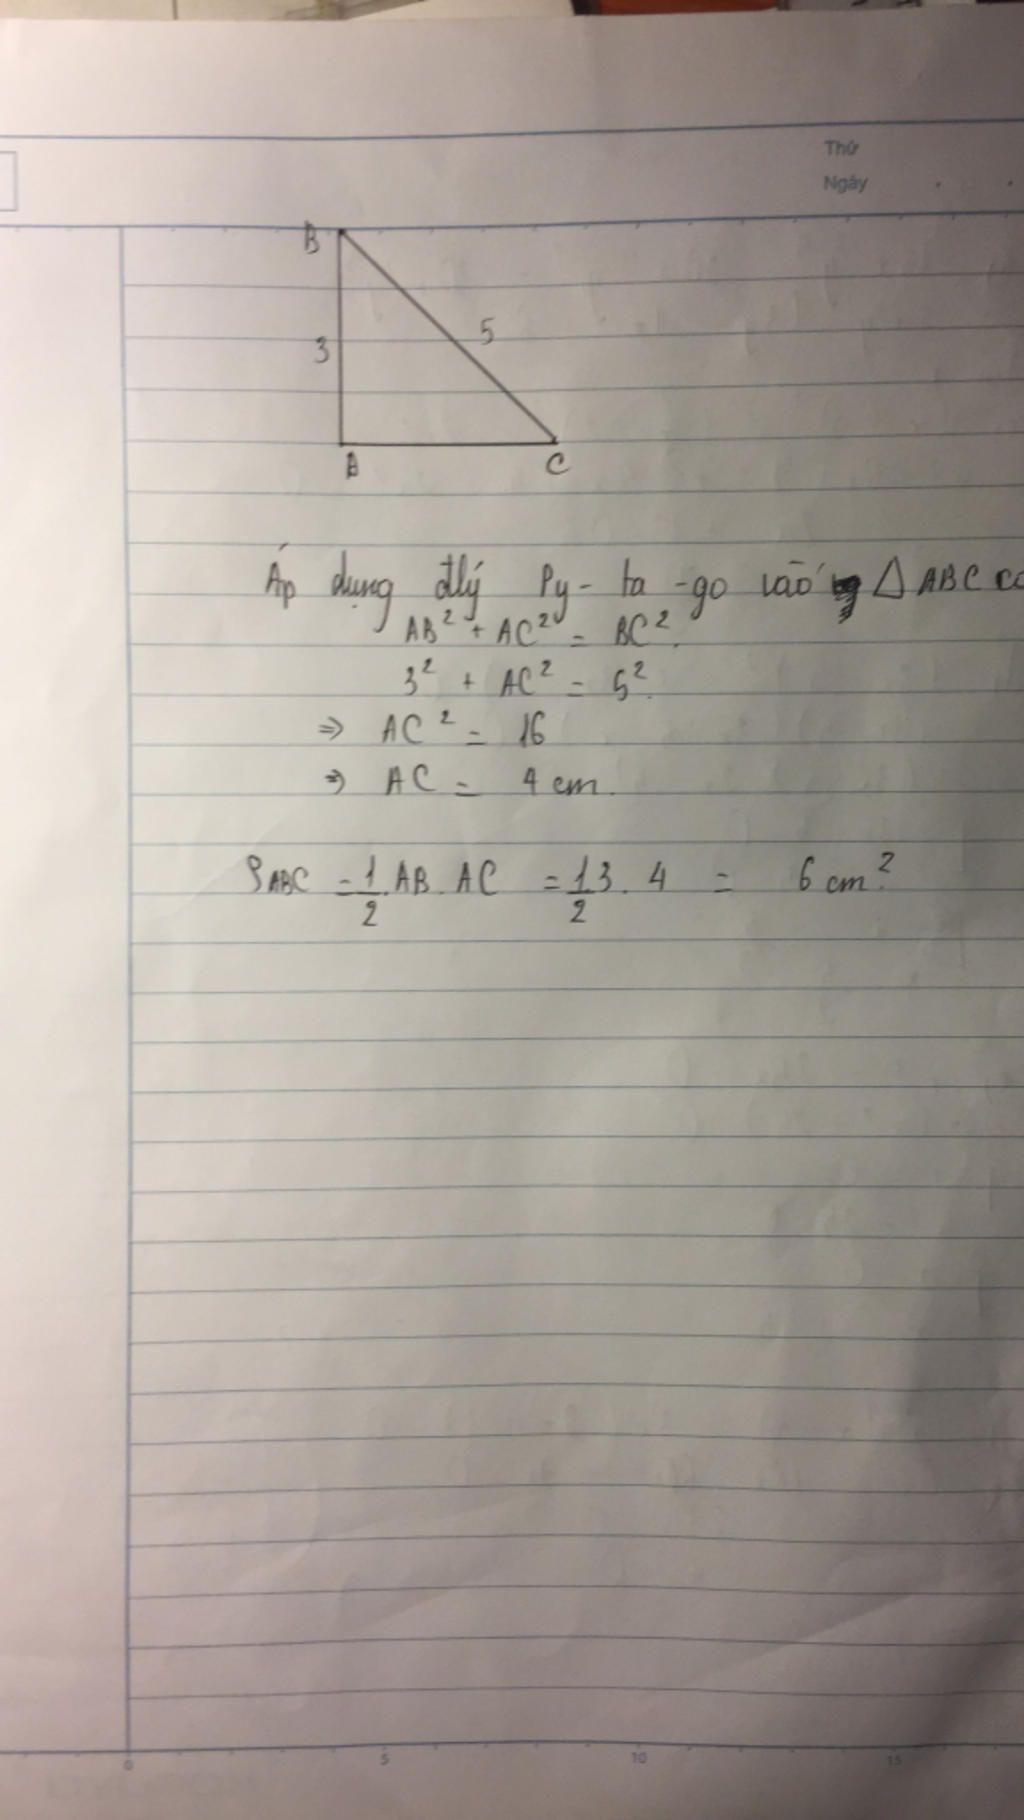 Thứ
Ngày
B
3
5
A
C
Áp dụng đlý Py-ta-go vào △ABC có
AB² + AC² = BC².
3² + AC² = 5².
⇒ AC² = 16
⇒ AC = 4 cm.
S_ABC = 1/2.AB.AC = 1/2 3.4 = 6 cm².
0 5 10 15